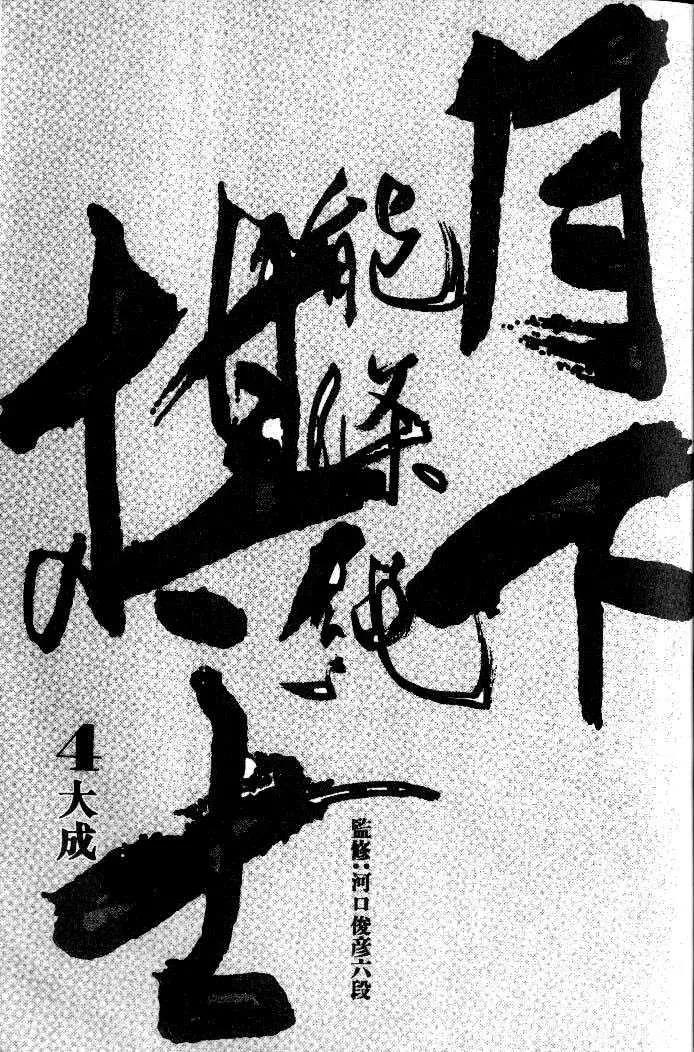 月下
棋士
能條純一
監修:河口俊彦六段
4大成